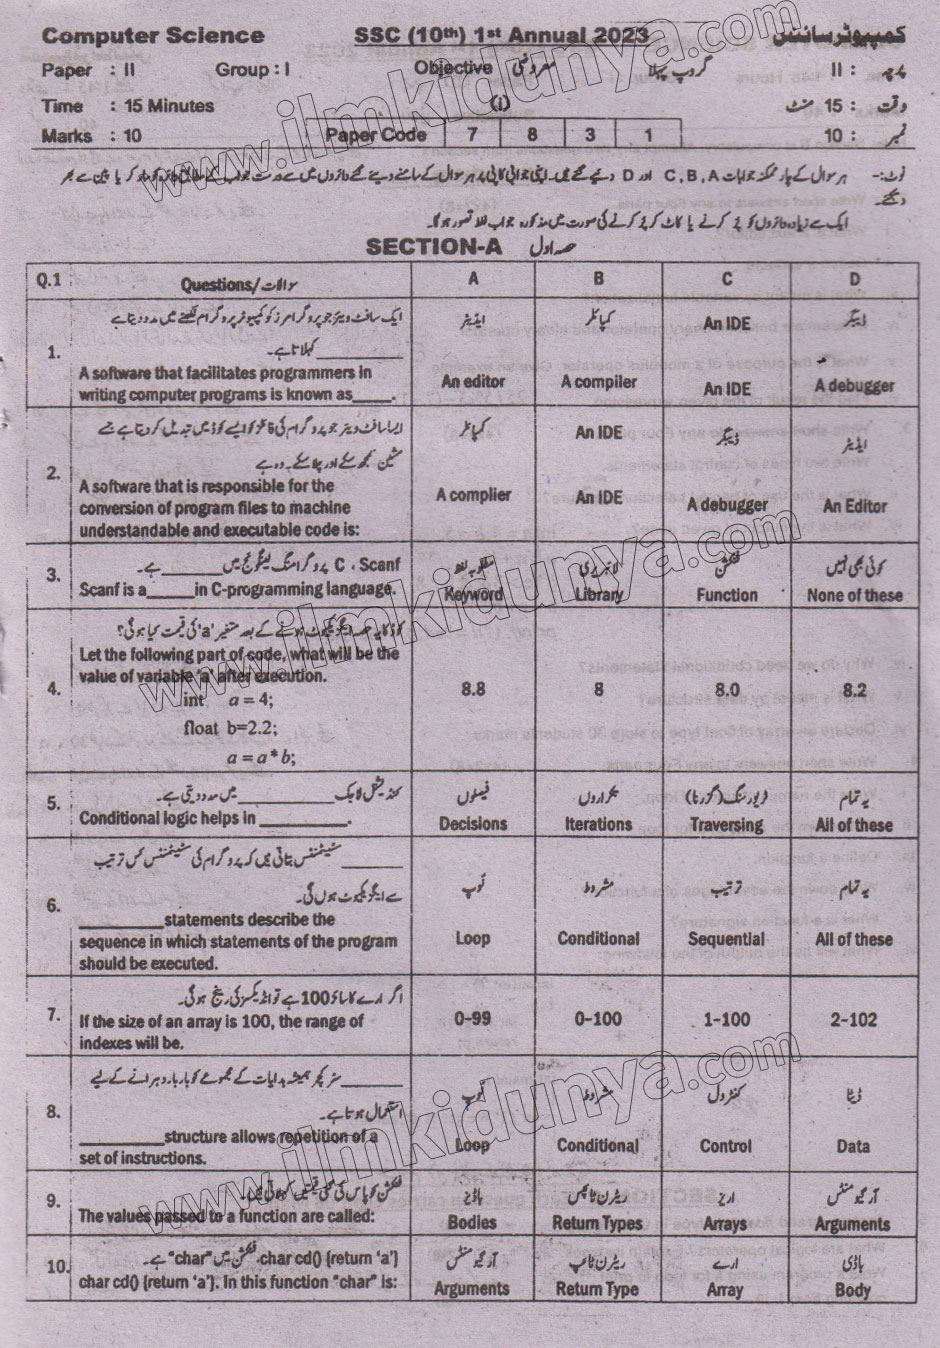 Computer Science SSC (10th) 1st Annual 2023 کمپیوٹر سائنس
Paper : II Group : I Objective معروضی گروپ پہلا پرچہ : II
Time : 15 Minutes (i) وقت : 15 منٹ
Marks : 10 Paper Code 7 8 3 1 نمبر : 10
نوٹ:- ہر سوال کے چار ممکنہ جوابات C, B, A اور D دیئے گئے ہیں۔ اپنی جوابی کاپی پر ہر سوال کے سامنے دیئے گئے دائروں میں سے درست جواب کے مطابق دائرہ کو مارکر یا پین سے بھر
دیجئے۔
ایک سے زیادہ دائروں کو پُر کرنے یا کاٹ کر پُر کرنے کی صورت میں مذکورہ جواب غلط تصور ہوگا۔
SECTION-A حصہ اول
Q.1 Questions/سوالات A B C D
1.
ایک سافٹ ویئر جو پروگرامرز کو کمپیوٹر پروگرام لکھنے میں مدد دیتا ہے
_________ کہلاتا ہے۔
A software that facilitates programmers in
writing computer programs is known as____.
ایڈیٹر
An editor
کمپائلر
A compiler
An IDE
An IDE
ڈیبگر
A debugger
2.
ایسا سافٹ ویئر جو پروگرام کی فائلز کو ایسے کوڈ میں تبدیل کر دیتا ہے جسے
مشین سمجھ سکے اور چلا سکے۔ وہ ہے
A software that is responsible for the
conversion of program files to machine
understandable and executable code is:
کمپائلر
A complier
An IDE
An IDE
ڈیبگر
A debugger
ایڈیٹر
An Editor
3.
C ، Scanf پروگرامنگ لینگوئج میں ______ ہے۔
Scanf is a_____in C-programming language.
مطلوبہ لفظ
Keyword
لائبریری
Library
فنکشن
Function
کوئی بھی نہیں
None of these
4.
کوڈ کا یہ حصہ ایگزیکیوٹ ہونے کے بعد متغیر 'a' کی قیمت کیا ہوگی؟
Let the following part of code, what will be the
value of variable 'a' after execution.
int a = 4;
float b=2.2;
a = a * b;
8.8
8
8.0
8.2
5.
کنڈیشنل لاجک _________ میں مدد دیتی ہے۔
Conditional logic helps in _________.
فیصلوں
Decisions
تکراروں
Iterations
ٹریورسنگ (گزرنا)
Traversing
یہ تمام
All of these
6.
______ سٹیٹمنٹس بتاتی ہیں کہ پروگرام کی سٹیٹمنٹس کس ترتیب
سے ایگزیکیوٹ ہوں گی۔
_________statements describe the
sequence in which statements of the program
should be executed.
لُوپ
Loop
مشروط
Conditional
ترتیب
Sequential
یہ تمام
All of these
7.
اگر ارے کا سائز 100 ہے تو انڈیکسز کی رینج ہوگی۔
If the size of an array is 100, the range of
indexes will be.
0-99
0-100
1-100
2-102
8.
______ سٹرکچر ہمیشہ ہدایات کے مجموعے کو بار بار دہرانے کے لیے
استعمال ہوتا ہے۔
_________structure allows repetition of a
set of instructions.
لُوپ
Loop
مشروط
Conditional
کنٹرول
Control
ڈیٹا
Data
9.
فنکشن کو پاس کی گئی قیمتیں کہلاتی ہیں۔
The values passed to a function are called:
باڈیز
Bodies
ریٹرن ٹائپس
Return Types
اریز
Arrays
آرگیومنٹس
Arguments
10.
char cd() {return 'a'} فنکشن میں "char" ہے۔
char cd() {return 'a'}. In this function "char" is:
آرگیومنٹس
Arguments
ریٹرن ٹائپ
Return Type
ارے
Array
باڈی
Body
www.ilmkidunya.com
www.ilmkidunya.com
www.ilmkidunya.com